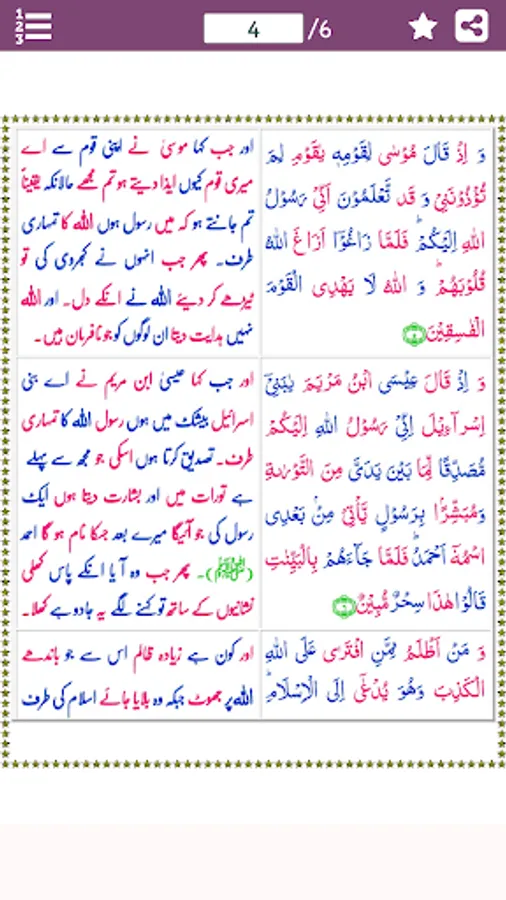 1
2
3
4
/6
وَ اِذْ قَالَ مُوْسٰى لِقَوْمِهٖ يٰقَوْمِ لِمَ
تُؤْذُوْنَنِيْ وَ قَد تَّعْلَمُوْنَ اَنِّيْ رَسُوْلُ
اللّٰهِ اِلَيْكُمْ ؕ فَلَمَّا زَاغُوْٓا اَزَاغَ اللّٰهُ
قُلُوْبَهُمْ ؕ وَ اللّٰهُ لَا يَهْدِى الْقَوْمَ
الْفٰسِقِيْنَ
اور جب کہا موسیٰ نے اپنی قوم سے اے
میری قوم کیوں ایذا دیتے ہو تم مجھے حالانکہ یقیناً
تم جانتے ہو کہ میں رسول ہوں اللہ کا تمہاری
طرف۔ پھر جب انہوں نے کجروی کی تو
ٹیڑھے کر دیئے اللہ نے انکے دل۔ اور اللہ
نہیں ہدایت دیتا ان لوگوں کو جو نافرمان ہیں۔
وَ اِذْ قَالَ عِيْسَى ابْنُ مَرْيَمَ يٰبَنِيْٓ
اِسْرَآءِيْلَ اِنِّيْ رَسُوْلُ اللّٰهِ اِلَيْكُمْ
مُّصَدِّقًا لِّمَا بَيْنَ يَدَيَّ مِنَ التَّوْرٰىةِ
وَمُبَشِّرًۢا بِرَسُوْلٍ يَّاْتِيْ مِنْۢ بَعْدِى
اسْمُهٗٓ اَحْمَدُ ؕ فَلَمَّا جَآءَهُمْ بِالْبَيِّنٰتِ
قَالُوْا هٰذَا سِحْرٌ مُّبِيْنٌ ۶
اور جب کہا عیسیٰ ابن مریم نے اے بنی
اسرائیل بیشک میں ہوں رسول اللہ کا تمہاری
طرف۔ تصدیق کرتا ہوں اسکی جو مجھ سے پہلے
ہے تورات میں اور بشارت دیتا ہوں ایک
رسول کی جو آئیگا میرے بعد جسکا نام ہو گا احمد
(ﷺ)۔ پھر جب وہ آ یا انکے پاس کھلی
نشانیوں کے ساتھ تو کہنے لگے یہ جادو ہے کھلا۔
وَ مَنْ اَظْلَمُ مِمَّنِ افْتَرٰى عَلَى اللّٰهِ
الْكَذِبَ وَهُوَ يُدْعٰٓى اِلَى الْاِسْلَامِ ؕ
اور کون ہے زیادہ ظالم اس سے جو باندھے
اللہ پر جھوٹ جبکہ وہ بلایا جائے اسلام کی طرف